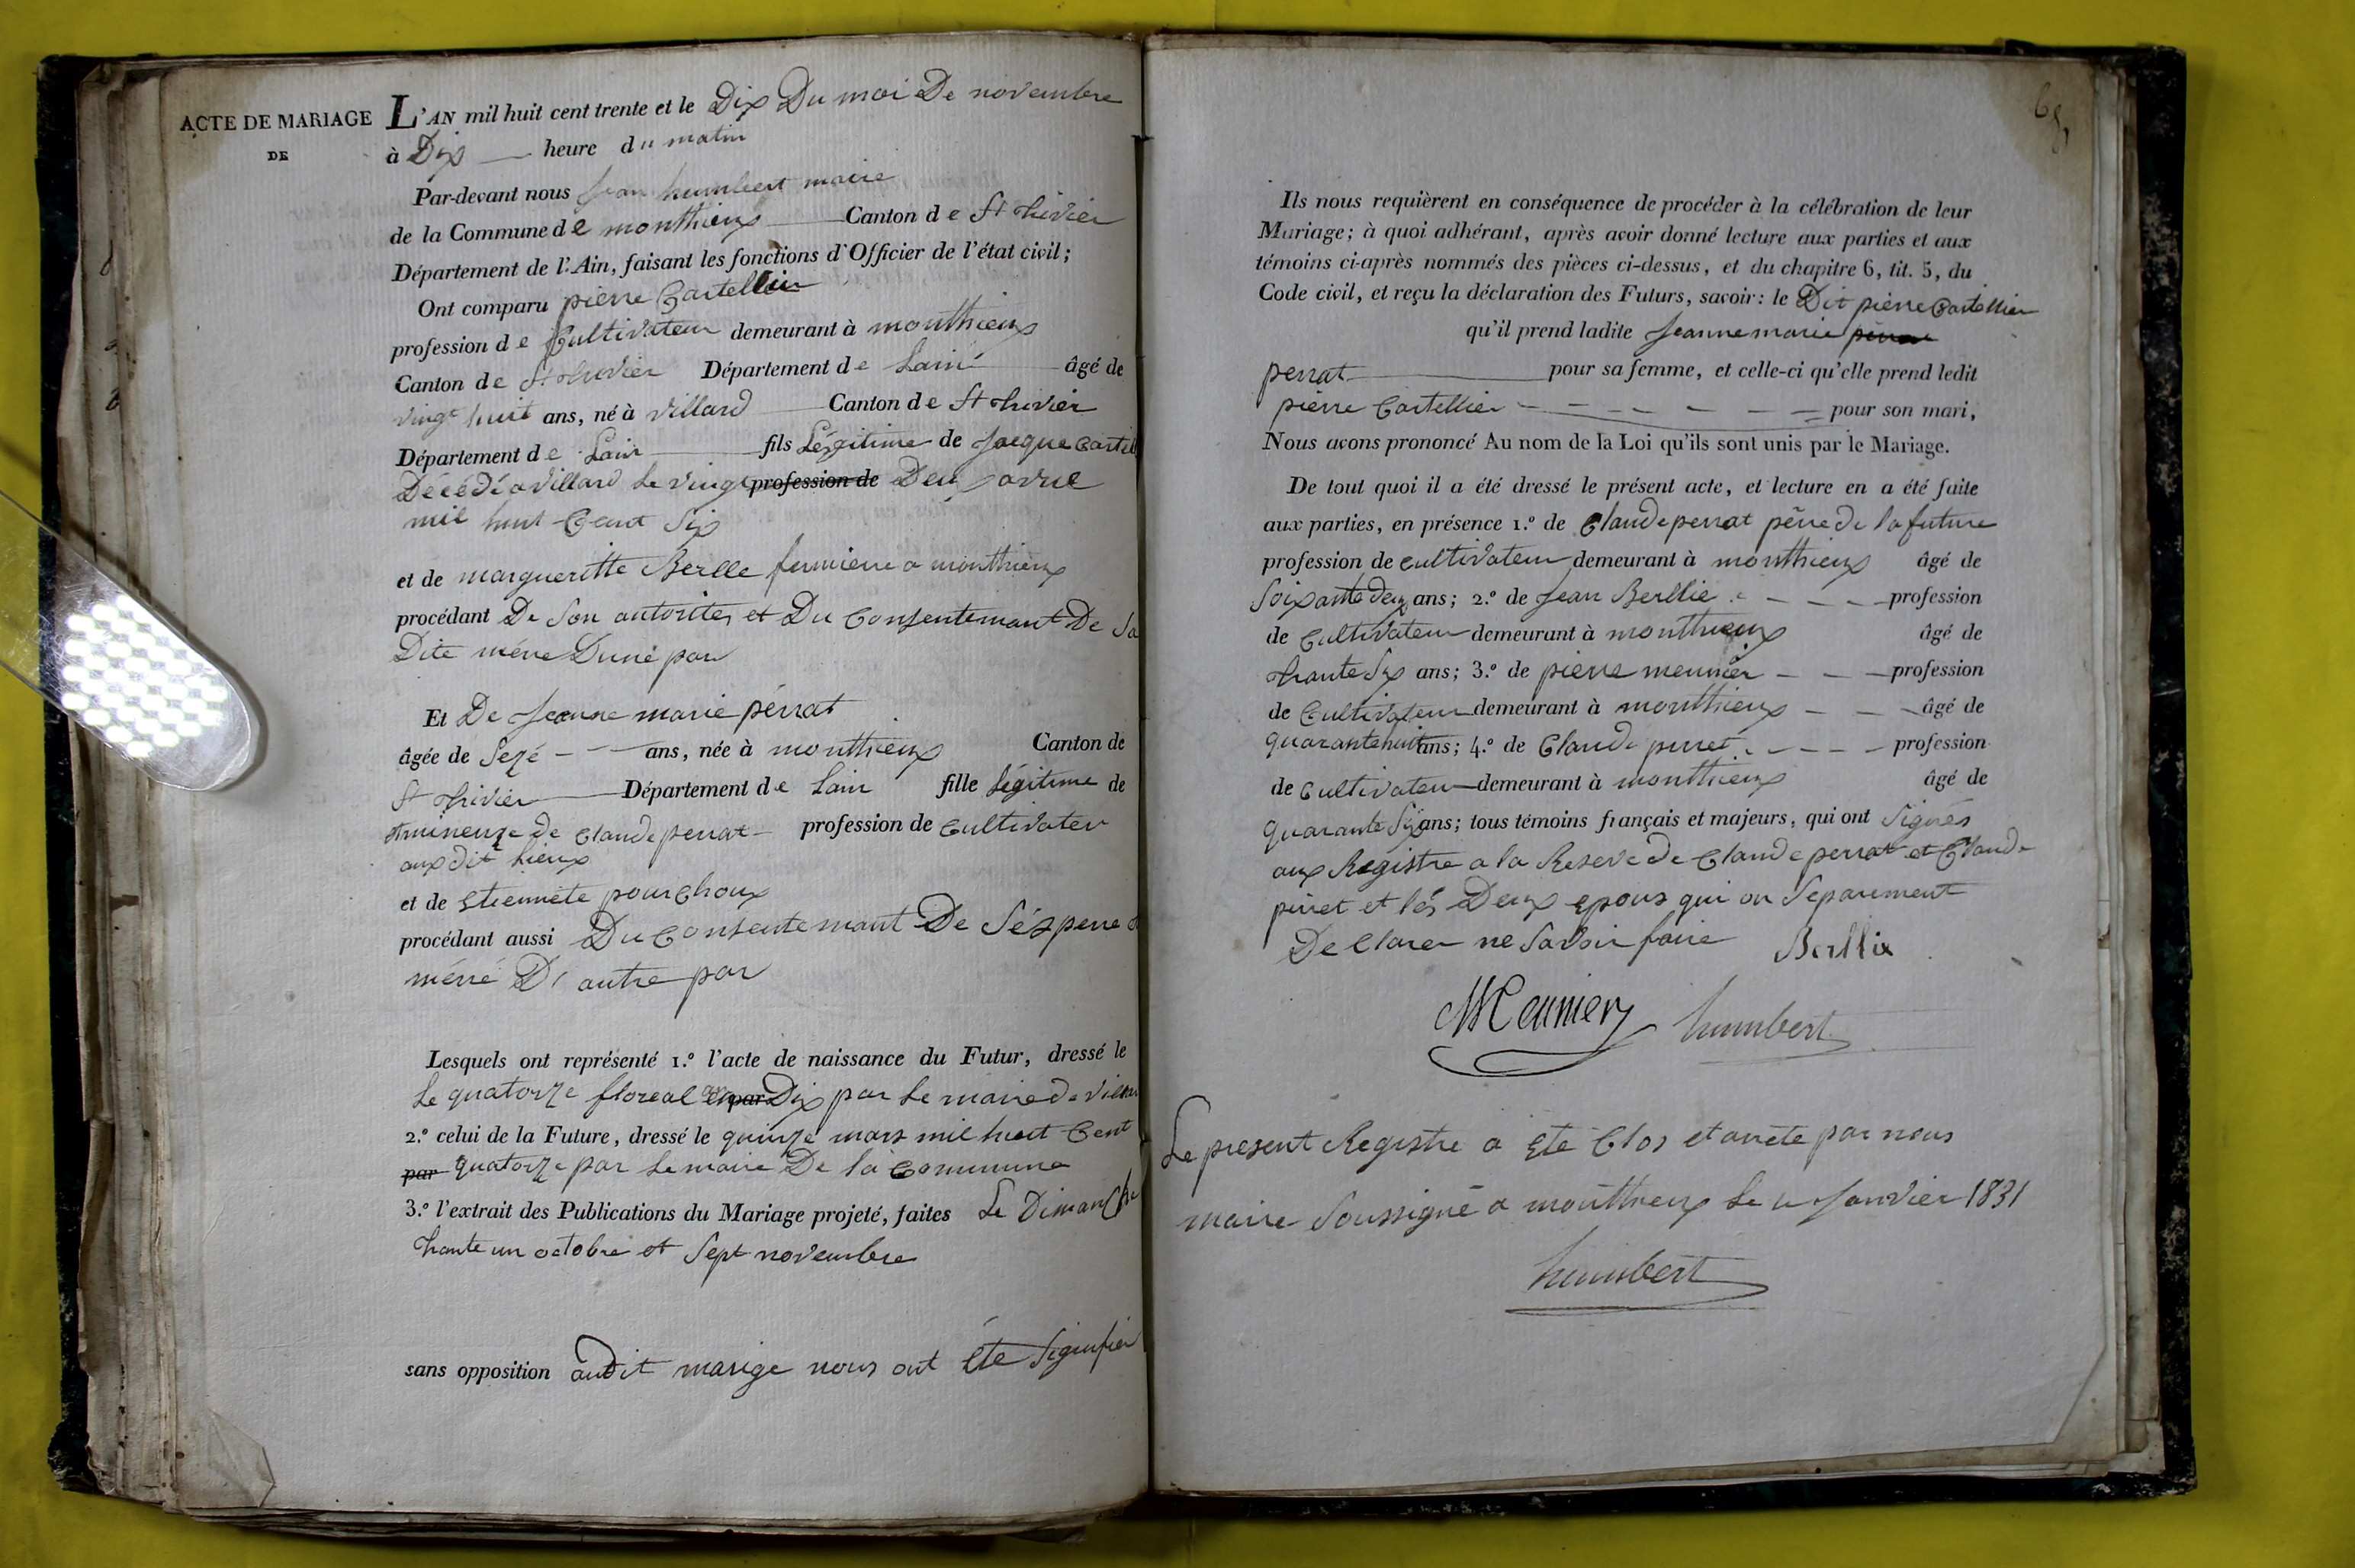 ACTE DE MARIAGE
DE
L'AN mil huit cent trente et le Dix Du moi De novembre
à Dix heure du matin
Par-devant nous jean humbert maire
de la Commune de monthieux Canton de St trivier
Département de l'Ain, faisant les fonctions d'Officier de l'état civil;
Ont comparu pierre Cartellier
profession de Cultivateur demeurant à monthieux
Canton de St trivier Département de Lain âgé de
vingt huit ans, né à villard Canton de St trivier
Département de Lain fils Légitime de Jacque Cartel
Décédé a villard Le vingt profession de Deux avril
mil huit Cent Six
et de margueritte Berlie fermiere a monthieux
procédant De Son autorites et Du Consentemant De Sa
Dite mère Dune par
Et De Jeanne marie pérrat
âgée de Sezé ans, née à monthieux Canton de
St trivier Département de Lain fille légitime de
et mineure de Claude perrat profession de Cultivateur
aux dit Lieux
et de Etiennete pourchoux
procédant aussi Du Consentemant De Sés pere et
méré D'autre par
Lesquels ont représenté 1.º l'acte de naissance du Futur, dressé le
Le quatorze floreal an par Dix par Le maire de villar
2.º celui de la Future, dressé le quinze mars mil huit Cent
par quatorze par Le maire De la Commune
3.º l'extrait des Publications du Mariage projeté, faites Le Dimanche
trante un octobre et Sept novembre
sans opposition audit marige nous ont été Signifier
Ils nous requièrent en conséquence de procéder à la célébration de leur
Mariage; à quoi adhérant, après avoir donné lecture aux parties et aux
témoins ci-après nommés des pièces ci-dessus, et du chapitre 6, tit. 5, du
Code civil, et reçu la déclaration des Futurs, savoir: le Dit pierre Cartellier
qu'il prend ladite Jeanne marie
perrat pour sa femme, et celle-ci qu'elle prend ledit
pierre Cartellier pour son mari,
Nous avons prononcé Au nom de la Loi qu'ils sont unis par le Mariage.
De tout quoi il a été dressé le présent acte, et lecture en a été faite
aux parties, en présence 1.º de Claude perrat père de la future
profession de cultivateur demeurant à monthieux âgé de
Soixante deux ans; 2.º de Jean Berllie profession
de Cultivateur demeurant à monthieux âgé de
trante Six ans; 3.º de pierre meunier profession
de Cultivateur demeurant à monthieux âgé de
quarante huit ans; 4.º de Claude perret profession
de Cultivateur demeurant à monthieux âgé de
quarante Six ans; tous témoins français et majeurs, qui ont Signés
aux Registre a la Reserve de Claude perrat et Claude
perret et lés Deux epoux qui on Séparément
De Clarer ne Savoir faire Berllie
Meunier humbert
Le présent Registre a été Clos et arrêté par nous
maire Soussigné a monthieux Le u Janvier 1831
humbert